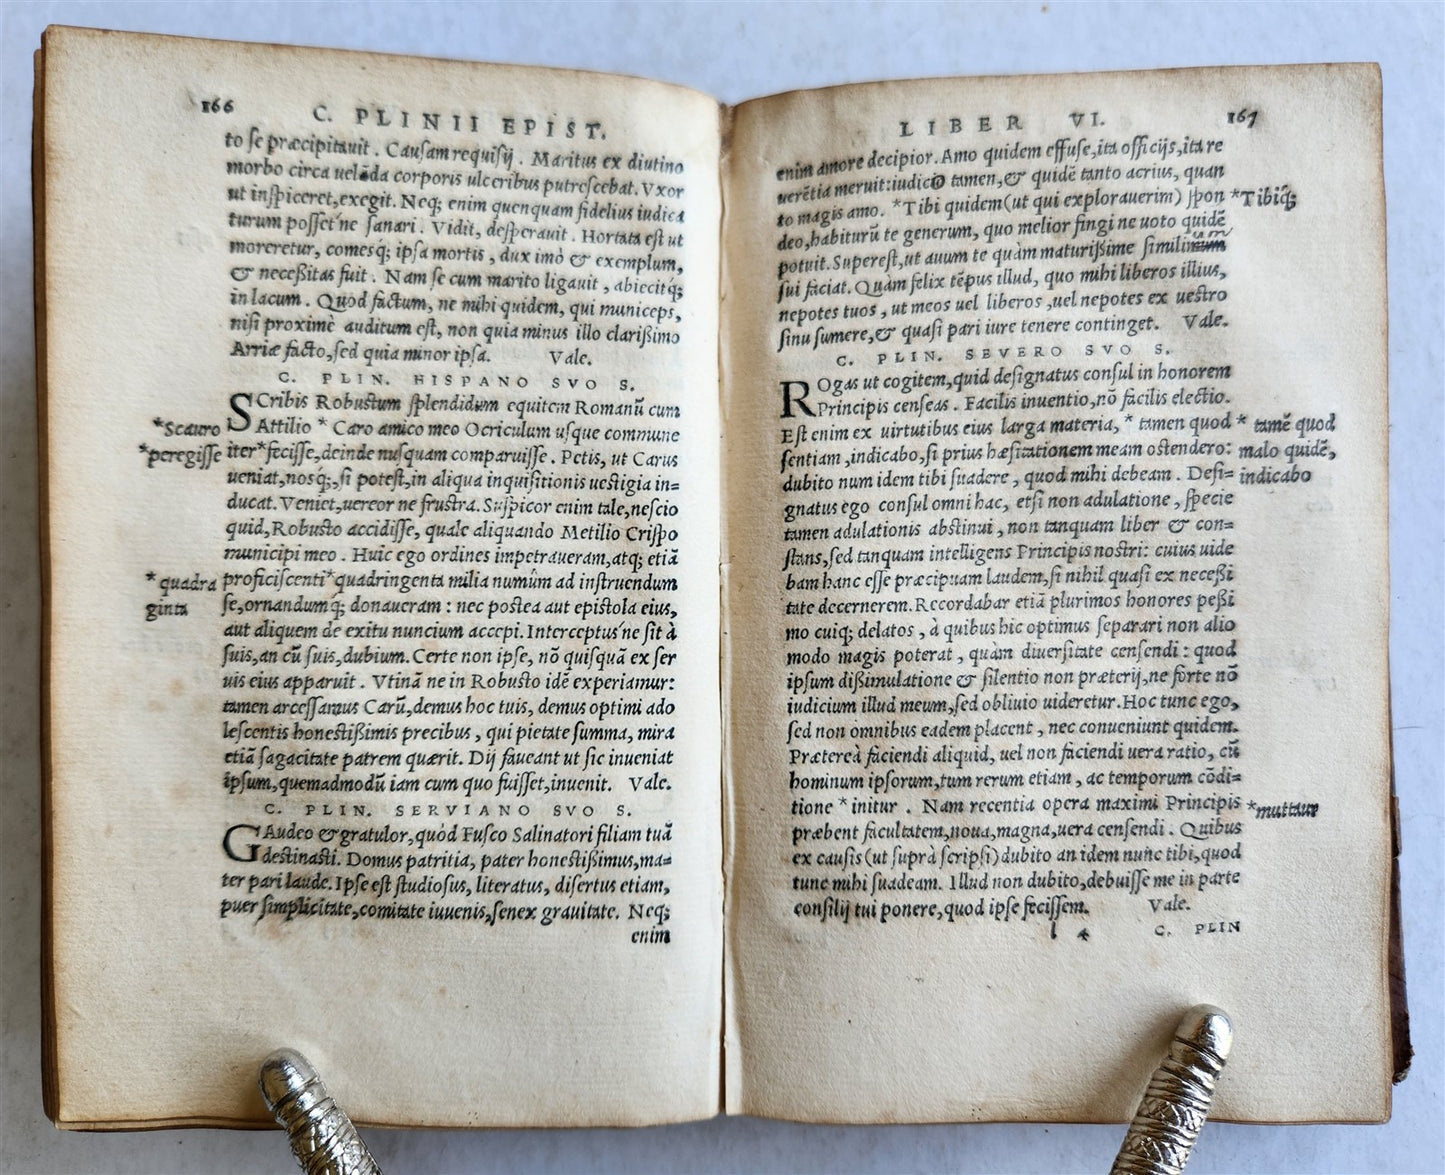 166
C. PLINII EPIST.
to se præcipitauit. Causam requisij. Maritus ex diutino
morbo circa uelãda corporis ulceribus putrescebat. Vxor
ut inspiceret, exegit. Neq; enim quenquam fidelius iudica
turum posset'ne sanari. Vidit, desperauit. Hortata est ut
moreretur, comesq; ipsa mortis, dux imò & exemplum,
& necessitas fuit. Nam se cum marito ligauit, abiecitq;
in lacum. Quòd factum, ne mihi quidem, qui municeps,
nisi proximè auditum est, non quia minus illo clarissimo
Arriæ facto, sed quia minor ipsa. Vale.
C. PLIN. HISPANO SVO S.
SCribis Robustum splendidum equitem Romanũ cum
*Scauro Attilio * Caro amico meo Ocriculum usque commune
*peregisse iter*fecisse, deinde nusquam comparuisse. Petis, ut Carus
ueniat, nosq́;, si potest, in aliqua inquisitionis uestigia in=
ducat. Veniet, uereor ne frustra. Suspicor enim tale, nescio
quid, Robusto accidisse, quale aliquando Metilio Crispo
municipi meo. Huic ego ordines impetraueram, atq; etiã
* quadra proficiscenti*quadringenta milia numûm ad instruendum
ginta se, ornandumq́; donaueram: nec postea aut epistola eius,
aut aliquem de exitu nuncium accepi. Interceptus'ne sit à
suis, an cũ suis, dubium. Certe non ipse, nõ quisquã ex ser
uis eius apparuit. Vtinã ne in Robusto idẽ experiamur:
tamen arcessamus Carũ, demus hoc tuis, demus optimi ado
lescentis honestissimis precibus, qui pietate summa, mira
etiã sagacitate patrem quærit. Dij faueant ut sic inueniat
ipsum, quemadmodũ iam cum quo fuisset, inuenit. Vale.
C. PLIN. SERVIANO SVO S.
GAudeo & gratulor, quòd Fusco Salinatori filiam tuã
destinasti. Domus patritia, pater honestissimus, ma=
ter pari laude. Ipse est studiosus, literatus, disertus etiam,
puer simplicitate, comitate iuuenis, senex grauitate. Neq;
enim
LIBER VI. 167
enim amore decipior. Amo quidem effuse, ita officijs, ita re
uerẽtia meruit: iudico tamen, & quidẽ tanto acrius, quan
to magis amo. *Tibi quidem (ut qui explorauerim) spon *Tibiq́;
deo, habiturũ te generum, quo melior fingi ne uoto quidẽ
potuit. Superest, ut auum te quàm maturissime similimum
sui faciat. Quàm felix tẽpus illud, quo mihi liberos illius,
nepotes tuos, ut meos uel liberos, uel nepotes ex uestro
sinu sumere, & quasi pari iure tenere continget. Vale.
C. PLIN. SEVERO SVO S.
ROgas ut cogitem, quid designatus consul in honorem
Principis censeas. Facilis inuentio, nõ facilis electio.
Est enim ex uirtutibus eius larga materia, * tamen quod * tamẽ quod
sentiam, indicabo, si prius hæsitationem meam ostendero: malo quidẽ,
dubito num idem tibi suadere, quod mihi debeam. Desi= indicabo
gnatus ego consul omni hac, etsi non adulatione, specie
tamen adulationis abstinui, non tanquam liber & con=
stans, sed tanquam intelligens Principis nostri: cuius uide
bam hanc esse præcipuam laudem, si nihil quasi ex necessi
tate decernerem. Recordabar etiã plurimos honores pessi
mo cuiq; delatos, à quibus hic optimus separari non alio
modo magis poterat, quàm diuersitate censendi: quod
ipsum dissimulatione & silentio non præterij, ne forte nõ
iudicium illud meum, sed obliuio uideretur. Hoc tunc ego,
sed non omnibus eadem placent, nec conueniunt quidem.
Prætereà faciendi aliquid, uel non faciendi uera ratio, cũ
hominum ipsorum, tum rerum etiam, ac temporum cõdi=
tione * initur. Nam recentia opera maximi Principis *muttatur
præbent facultatem, noua, magna, uera censendi. Quibus
ex causis (ut suprà scripsi) dubito an idem nunc tibi, quod
tunc mihi suadeam. Illud non dubito, debuisse me in parte
consilij tui ponere, quod ipse fecissem. Vale.
l 4 C. PLIN